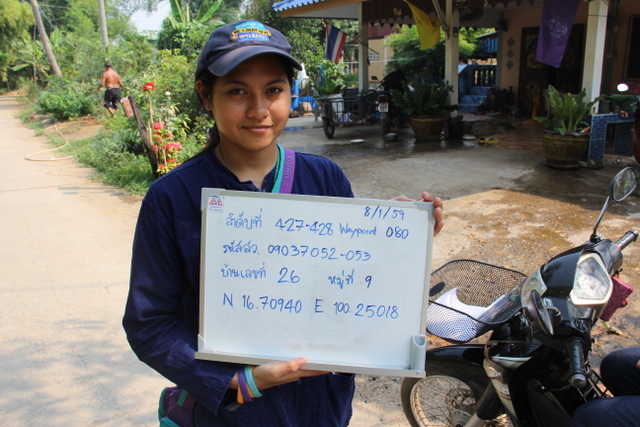 8/1/59
ลำดับที่ 427-428 Waypoint 080
รหัส สว. 09037052-053
บ้านเลขที่ 26 หมู่ที่ 9
N 16.70940 E 100.25018